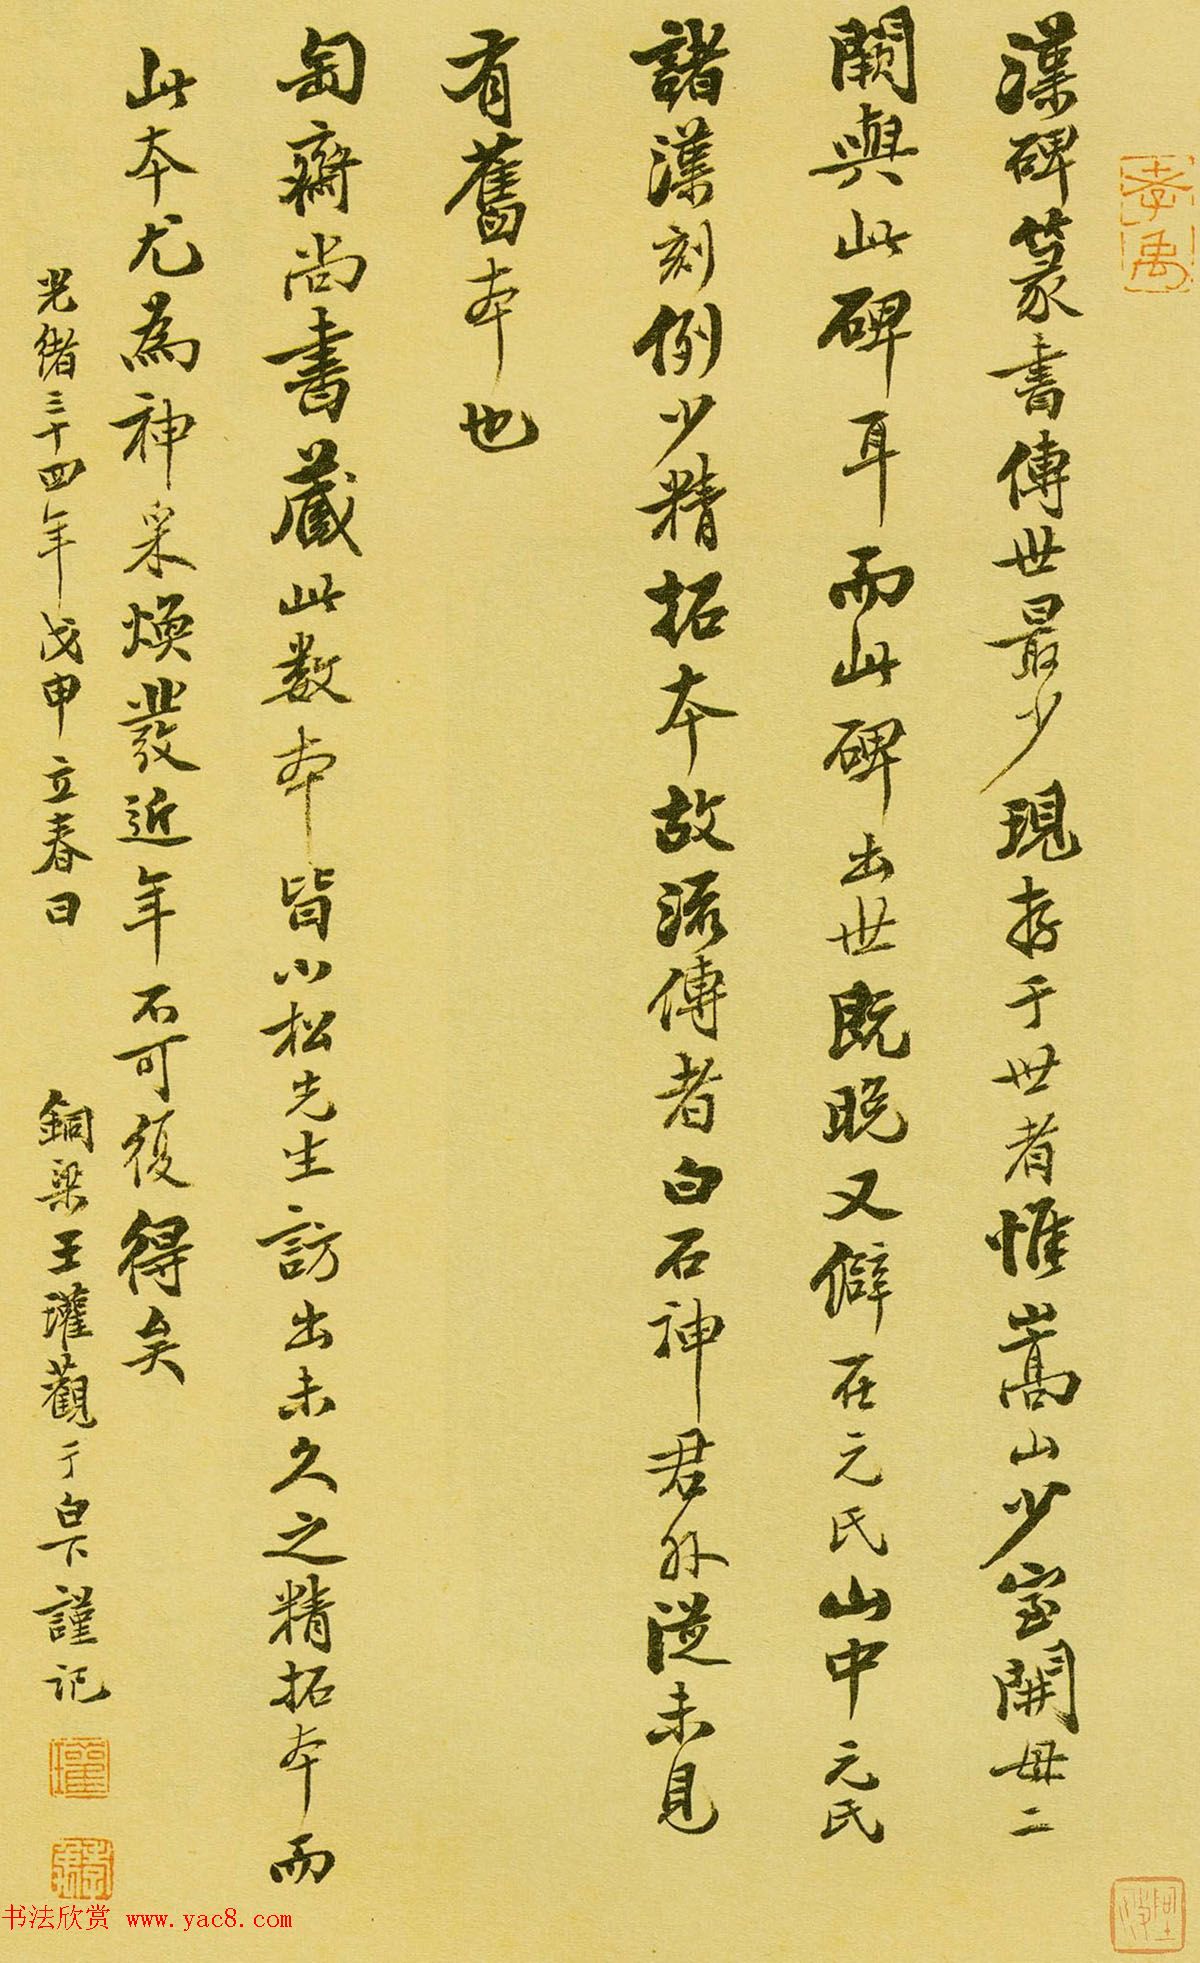 漢碑篆書傳世最少現存于世者惟嵩山少室開母二
闕與此碑耳而此碑出世既晚又僻在元氏山中元氏
諸漢刻例少精拓本故流傳者白石神君外從未見
有舊本也
匋齋尚書藏此數本皆小松先生訪出未久之精拓本而
此本尤為神采煥發近年不可復得矣
光緒三十四年戊申立春日 銅梁王瓘觀于白下謹記
孝禹
瓘
書法欣赏 www.yac8.com